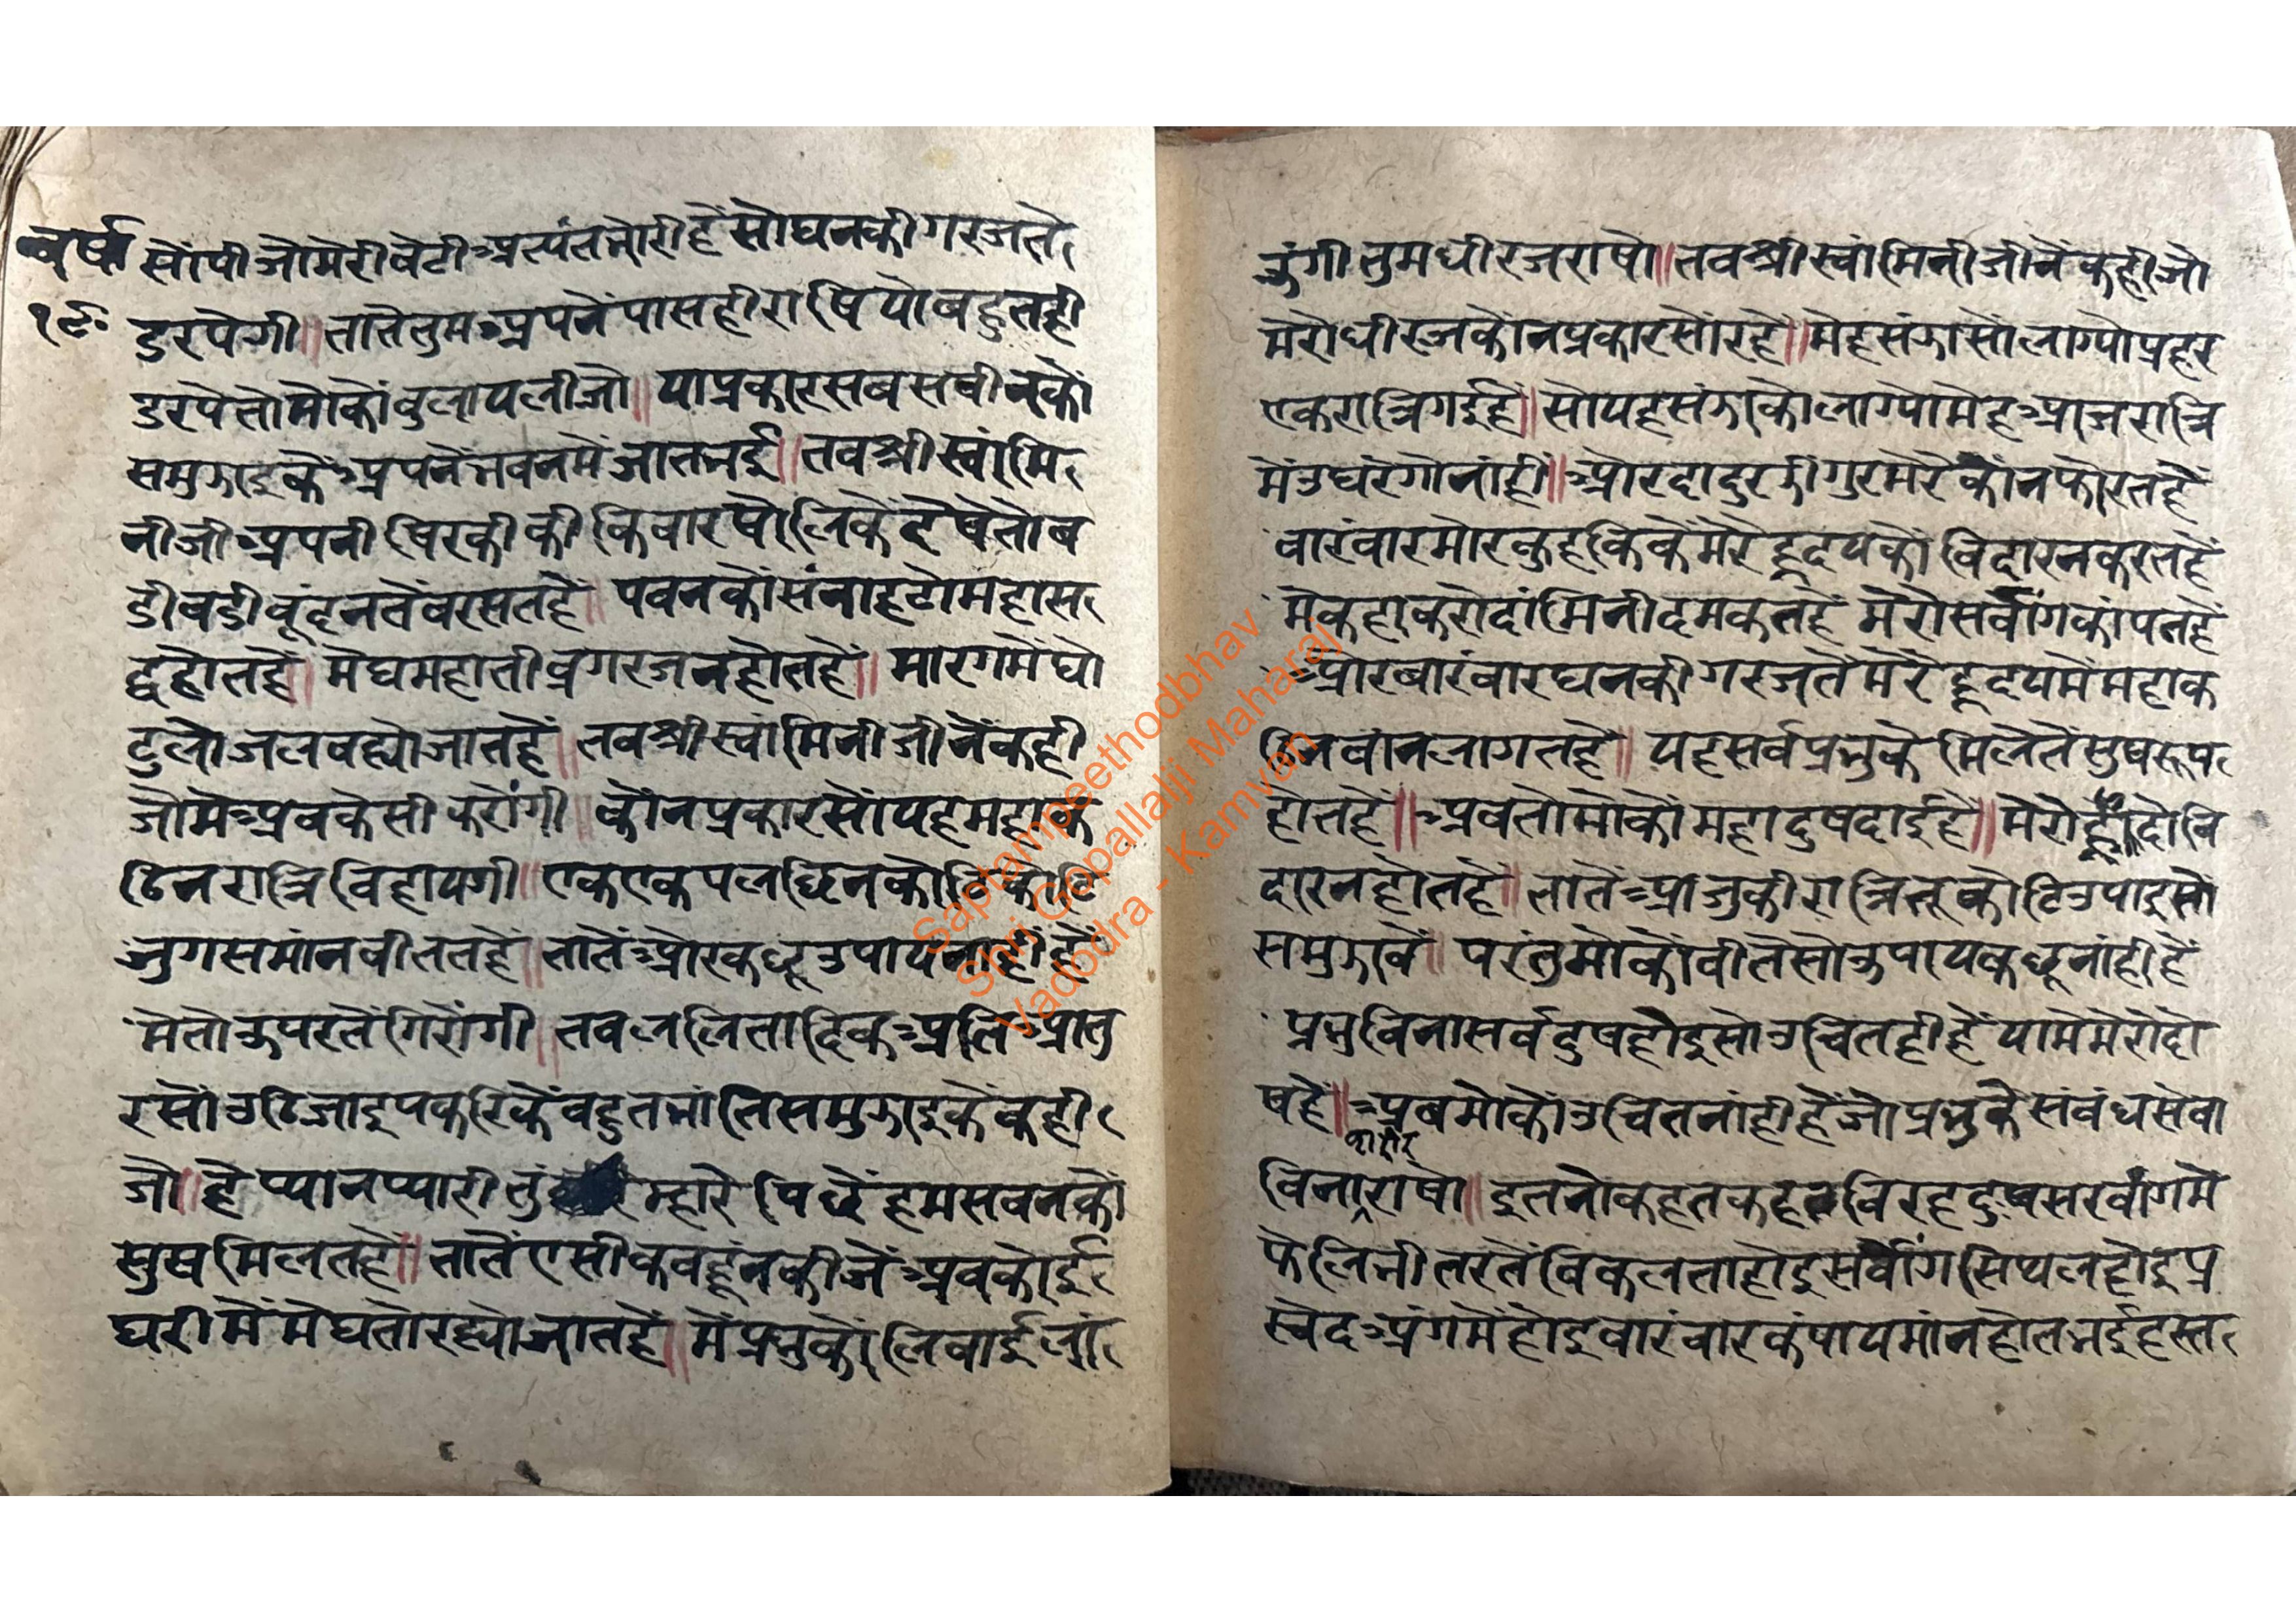 वर्षा
१९
सोंपी जो मेरी बेटी अत्यंत भोरी हें सो घन की गरज ते
डरपेगी॥ तातें तुम अपनें पास ही राषियो बहुत ही
डरपे तो मोकों बुलाय लीजो॥ या प्रकार सब सषीन कों
समुझाइ कें अपनें भवन में जात भई॥ तब श्री स्वांमि
नीजी अपनी षिरकी की किवार षोलिकें देषे तो ब
डी बडी बूंदन तें बरसत हें॥ पवन कों संनाहटो महा स
द्द होत हें॥ मेघ महा तीव्र गरजन होत हें॥ मारग में घो
टुलो जल वह्यो जात हें॥ तब श्री स्वांमिनीजी नें कही
जो में अब केसी करोंगी॥ कोंन प्रकार सों यह महा क
ठिन रात्रि विहायगी॥ एक एक पल छिन कोटि कोटि
जुग समांन वीतत हें॥ तातें ओर कछू उपाय नांही हें
में तो ऊपर तें गिरोंगी॥ तब ललितादिक अति आतु
र सों उठि जाइ पकरिकें बहुत भांति समुझाइ कें कही
जो॥ हे प्यानप्यारी तुं म्हारे पिछें हम सबन कों
सुष मिलत हें॥ तातें एसी कबहूं न कीजें अब कोई
घरी में मेघ तो रह्यो जात हें॥ में प्रभु कों लिवाई लां
ऊंगी तुम धीरज राषो॥ तब श्री स्वांमिनीजी नें कही जो
मेरो धीरज कोंन प्रकार सों रहे॥ मेह संझा सों लाग्यो प्रहर
एक रात्रि गई हें॥ सो यह संझा को लाग्यो मेह आज रात्रि
में उघरेगो नांही॥ ओर दादुर झीगुर मेरे कांन फोरत हें
वारंवार मोर कुहकिकें मेरे हृदय कों विदारन करत हें
में कहा करो दांमिनी दमकत हें मेरो सर्वांग कांपत हें
ओर बारंवार घन की गरज तें मेरे हृदय में महा क
ठिन बांन लागत हें॥ यह सर्व प्रभु के मिले तें सुषरूप
होत हें॥ अब तो मोकों महा दुषदाई हे॥ मेरो वि
दारन होत हें॥ तातें आजु की रात्रि तू कोटि उपाइ सो
समुझावें॥ परंतु मोकों वीते सो ऊपाय कछू नांही हें
प्रभु विना सर्व दुष होइ सो उचित ही हें यामें मेरो दो
ष हें॥ अब मोकों उचित नांही हें जो प्रभु के संबंध सेवा
विना राषो॥ इतनो कहत कहत विरह दुष सरवांग में
फेलि भीतर तें विकलता होइ सर्वांग सिथल होइ प्र
स्वेद अंग में होइ वारंवार कंपायमांन होत भई हस्त